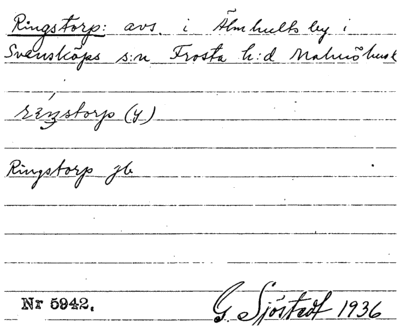 Ringstorp: avs. i Älmhults by i
Svensköps s:n Frosta h:d Malmöhus
Ringstorp jb
Nr 5942.
G. Sjöstedt 1936